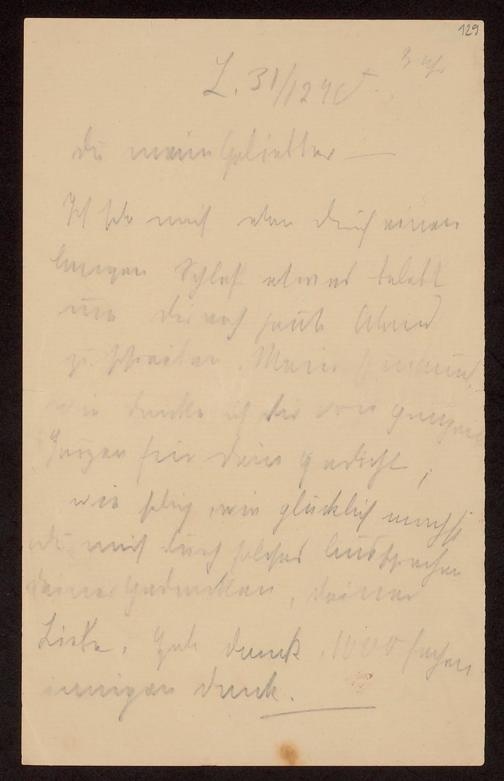 129
L. 31/12
Du mein Geliebter —
Ich habe mich eben durch einen
langen Schlaf etwas belebt
um dir noch heute Abend
zu schreiben. Mein
wie danke ich dir von ganzem
Herzen für dein Gedicht,
wie selig, wie glücklich machst
du mich durch solches Aussprechen
deiner Gedanken, deiner
Liebe. Hab Dank 1000 fachen
innigen Dank.